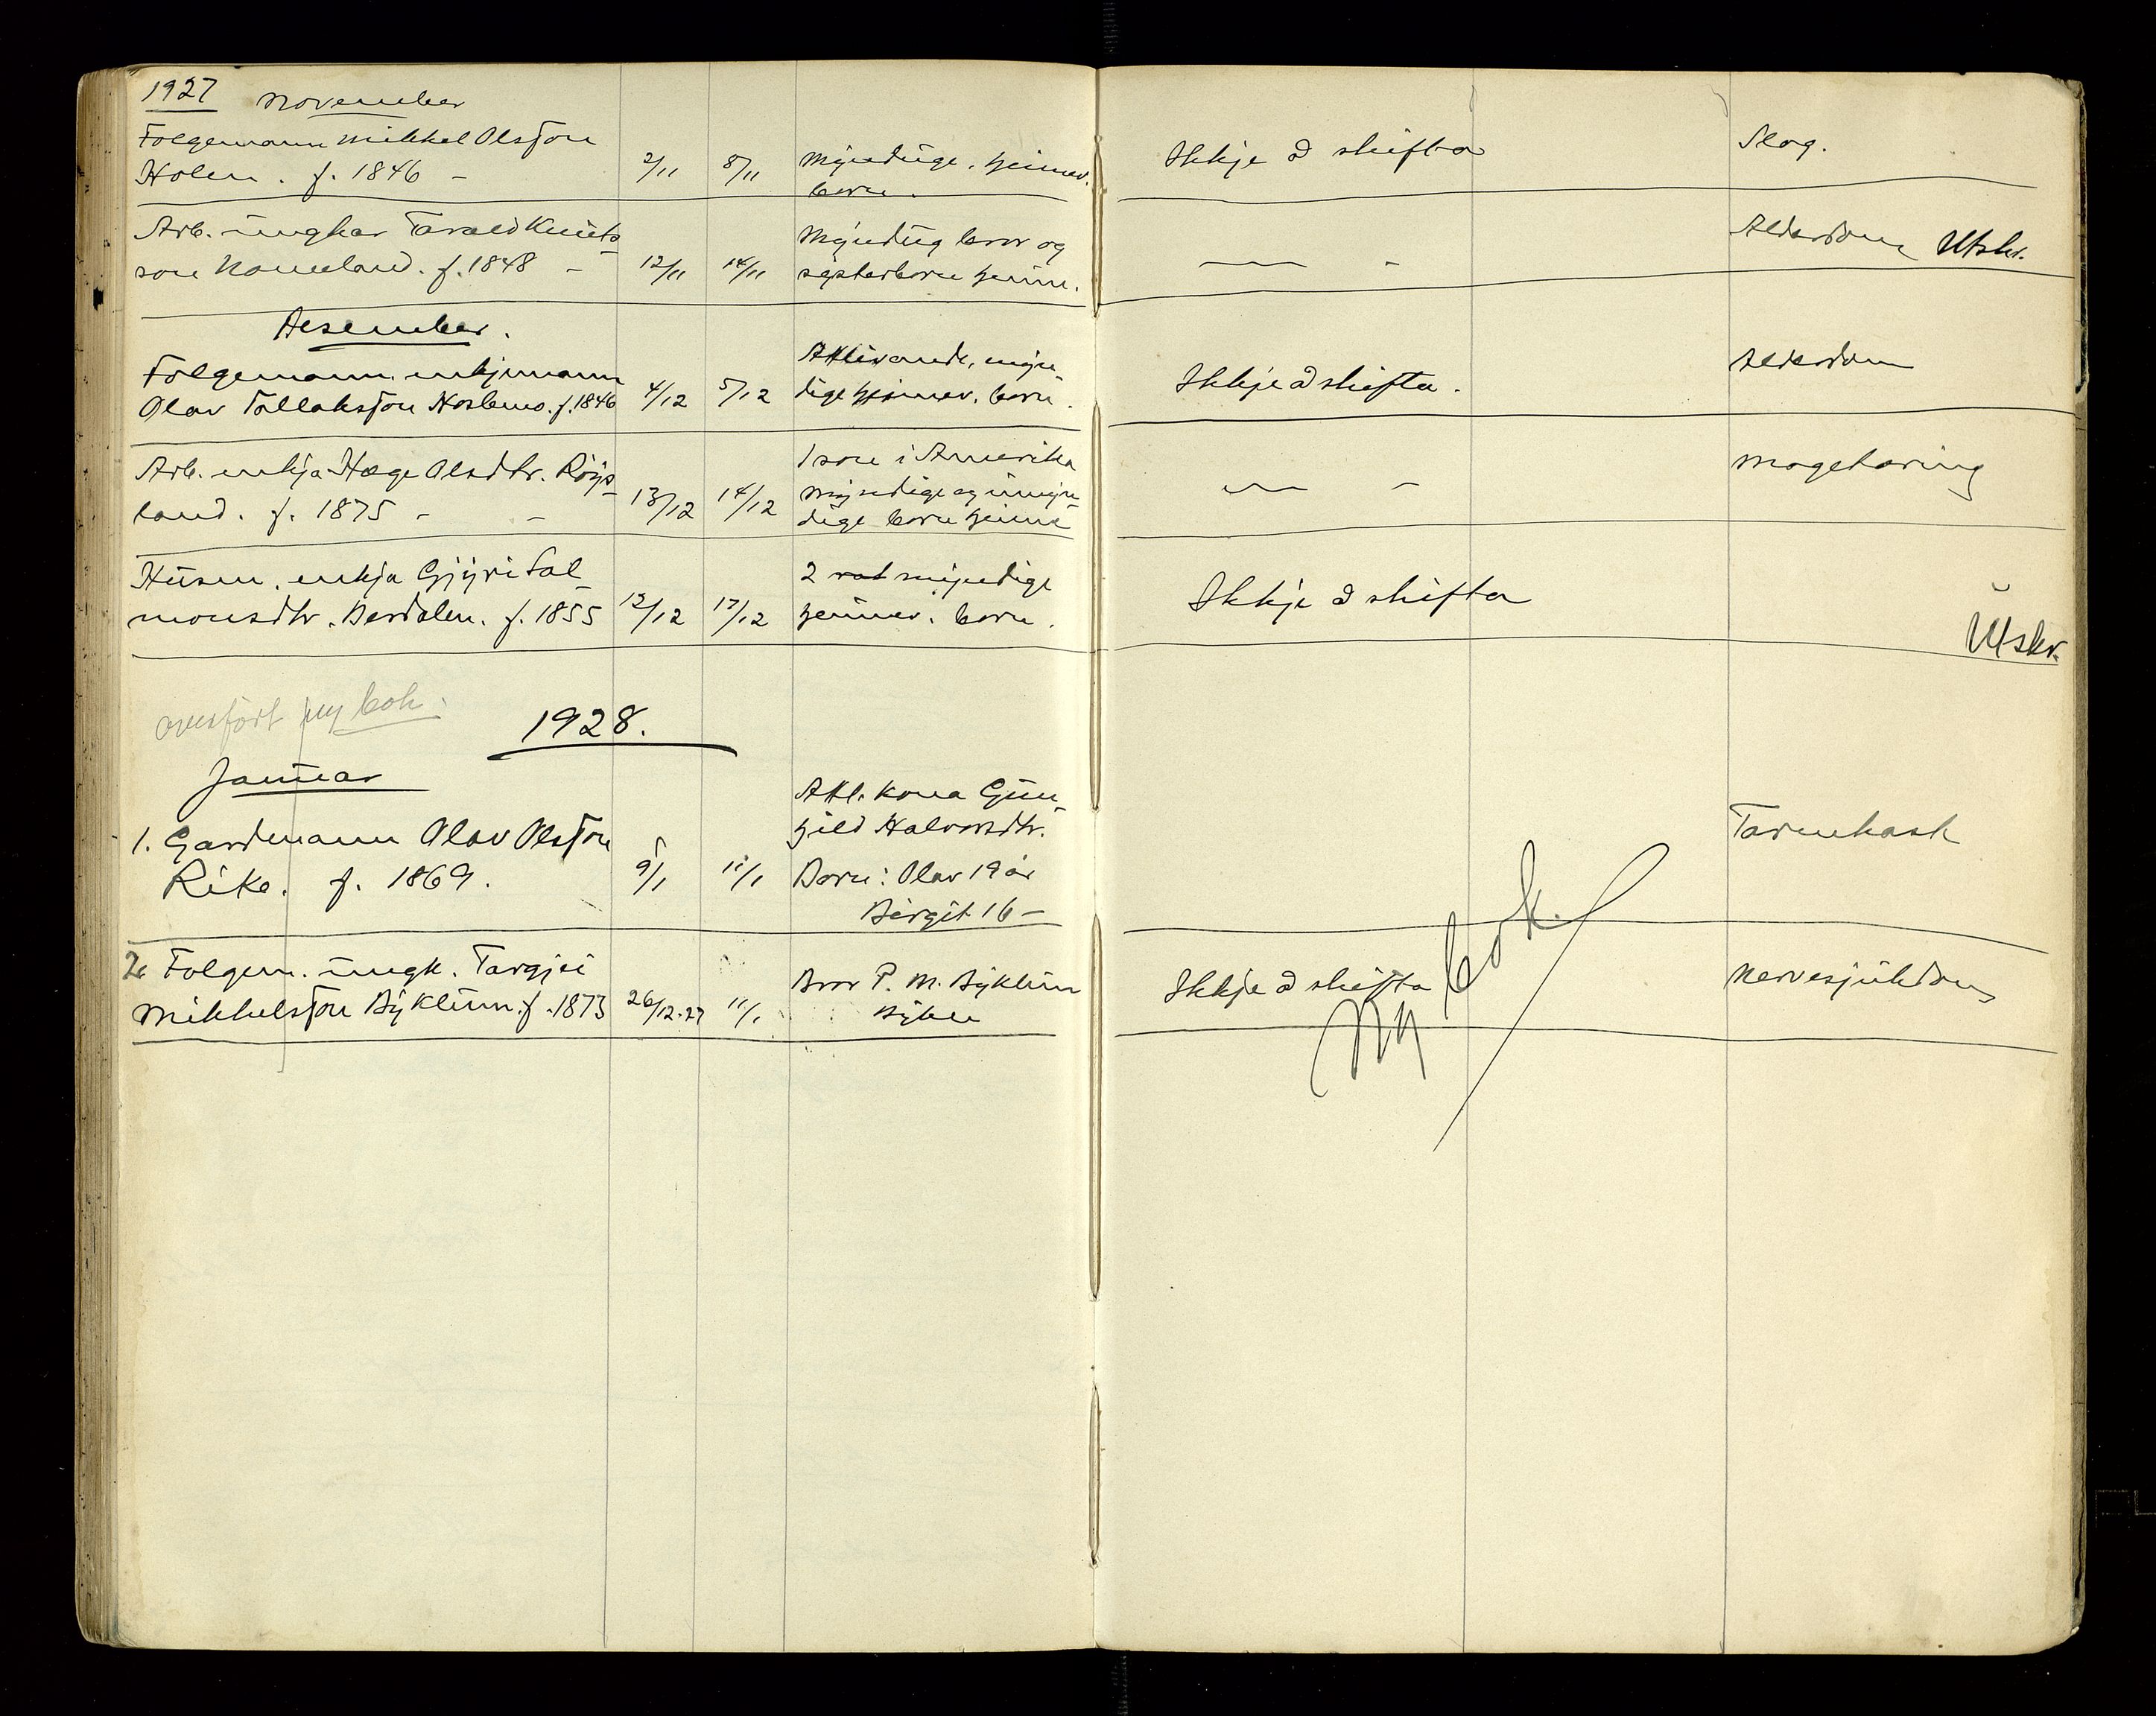 1927 November
Folgemann Mikkel Olsson
Holen. f. 1846 - 2/11 8/11 Myndige, heimev.
born.
Ikkje å skifta
Slag.
Arb. ungkar Tarald Knuts-
son Nomeland. f. 1848 - 12/11 14/11
Myndug bror og
systerborn heime.
— -
Alderdom Utskr.
Desember.
Folgemann enkjemann
Olav Tallaksson Hoslemo. f. 1846 4/12 5/12
Attlivande, myn-
dige heimev. born.
Ikkje å skifta.
Alderdom
Arb. enkja Hæge Olsdtr. Røys-
land. f. 1875 - - 13/12 14/12
1 son i Amerika
myndige og umyn-
dige born heime
— -
Magekaring
Husm. enkja Gyri Sal-
monsdtr. Berdalen. f. 1855 12/12 17/12
2 myndige
heimev. born.
Ikkje å skifta
Utskr.
overført ny bok.
1928.
Januar
1. Gardmann Olav Olsson
Rike. f. 1869. 9/1 11/1
Attl. kona Gun-
hild Halvorsdtr.
Born: Olav 19 år
Birgit 16 -
Tarmkask
2. Folgem. ungk. Targjei
Mikkelsson Byklum. f. 1873 26/12-27 11/1
Bror P. M. Byklum
Bykle
Ikkje å skifta
Nervesjukdom
Ny bok.